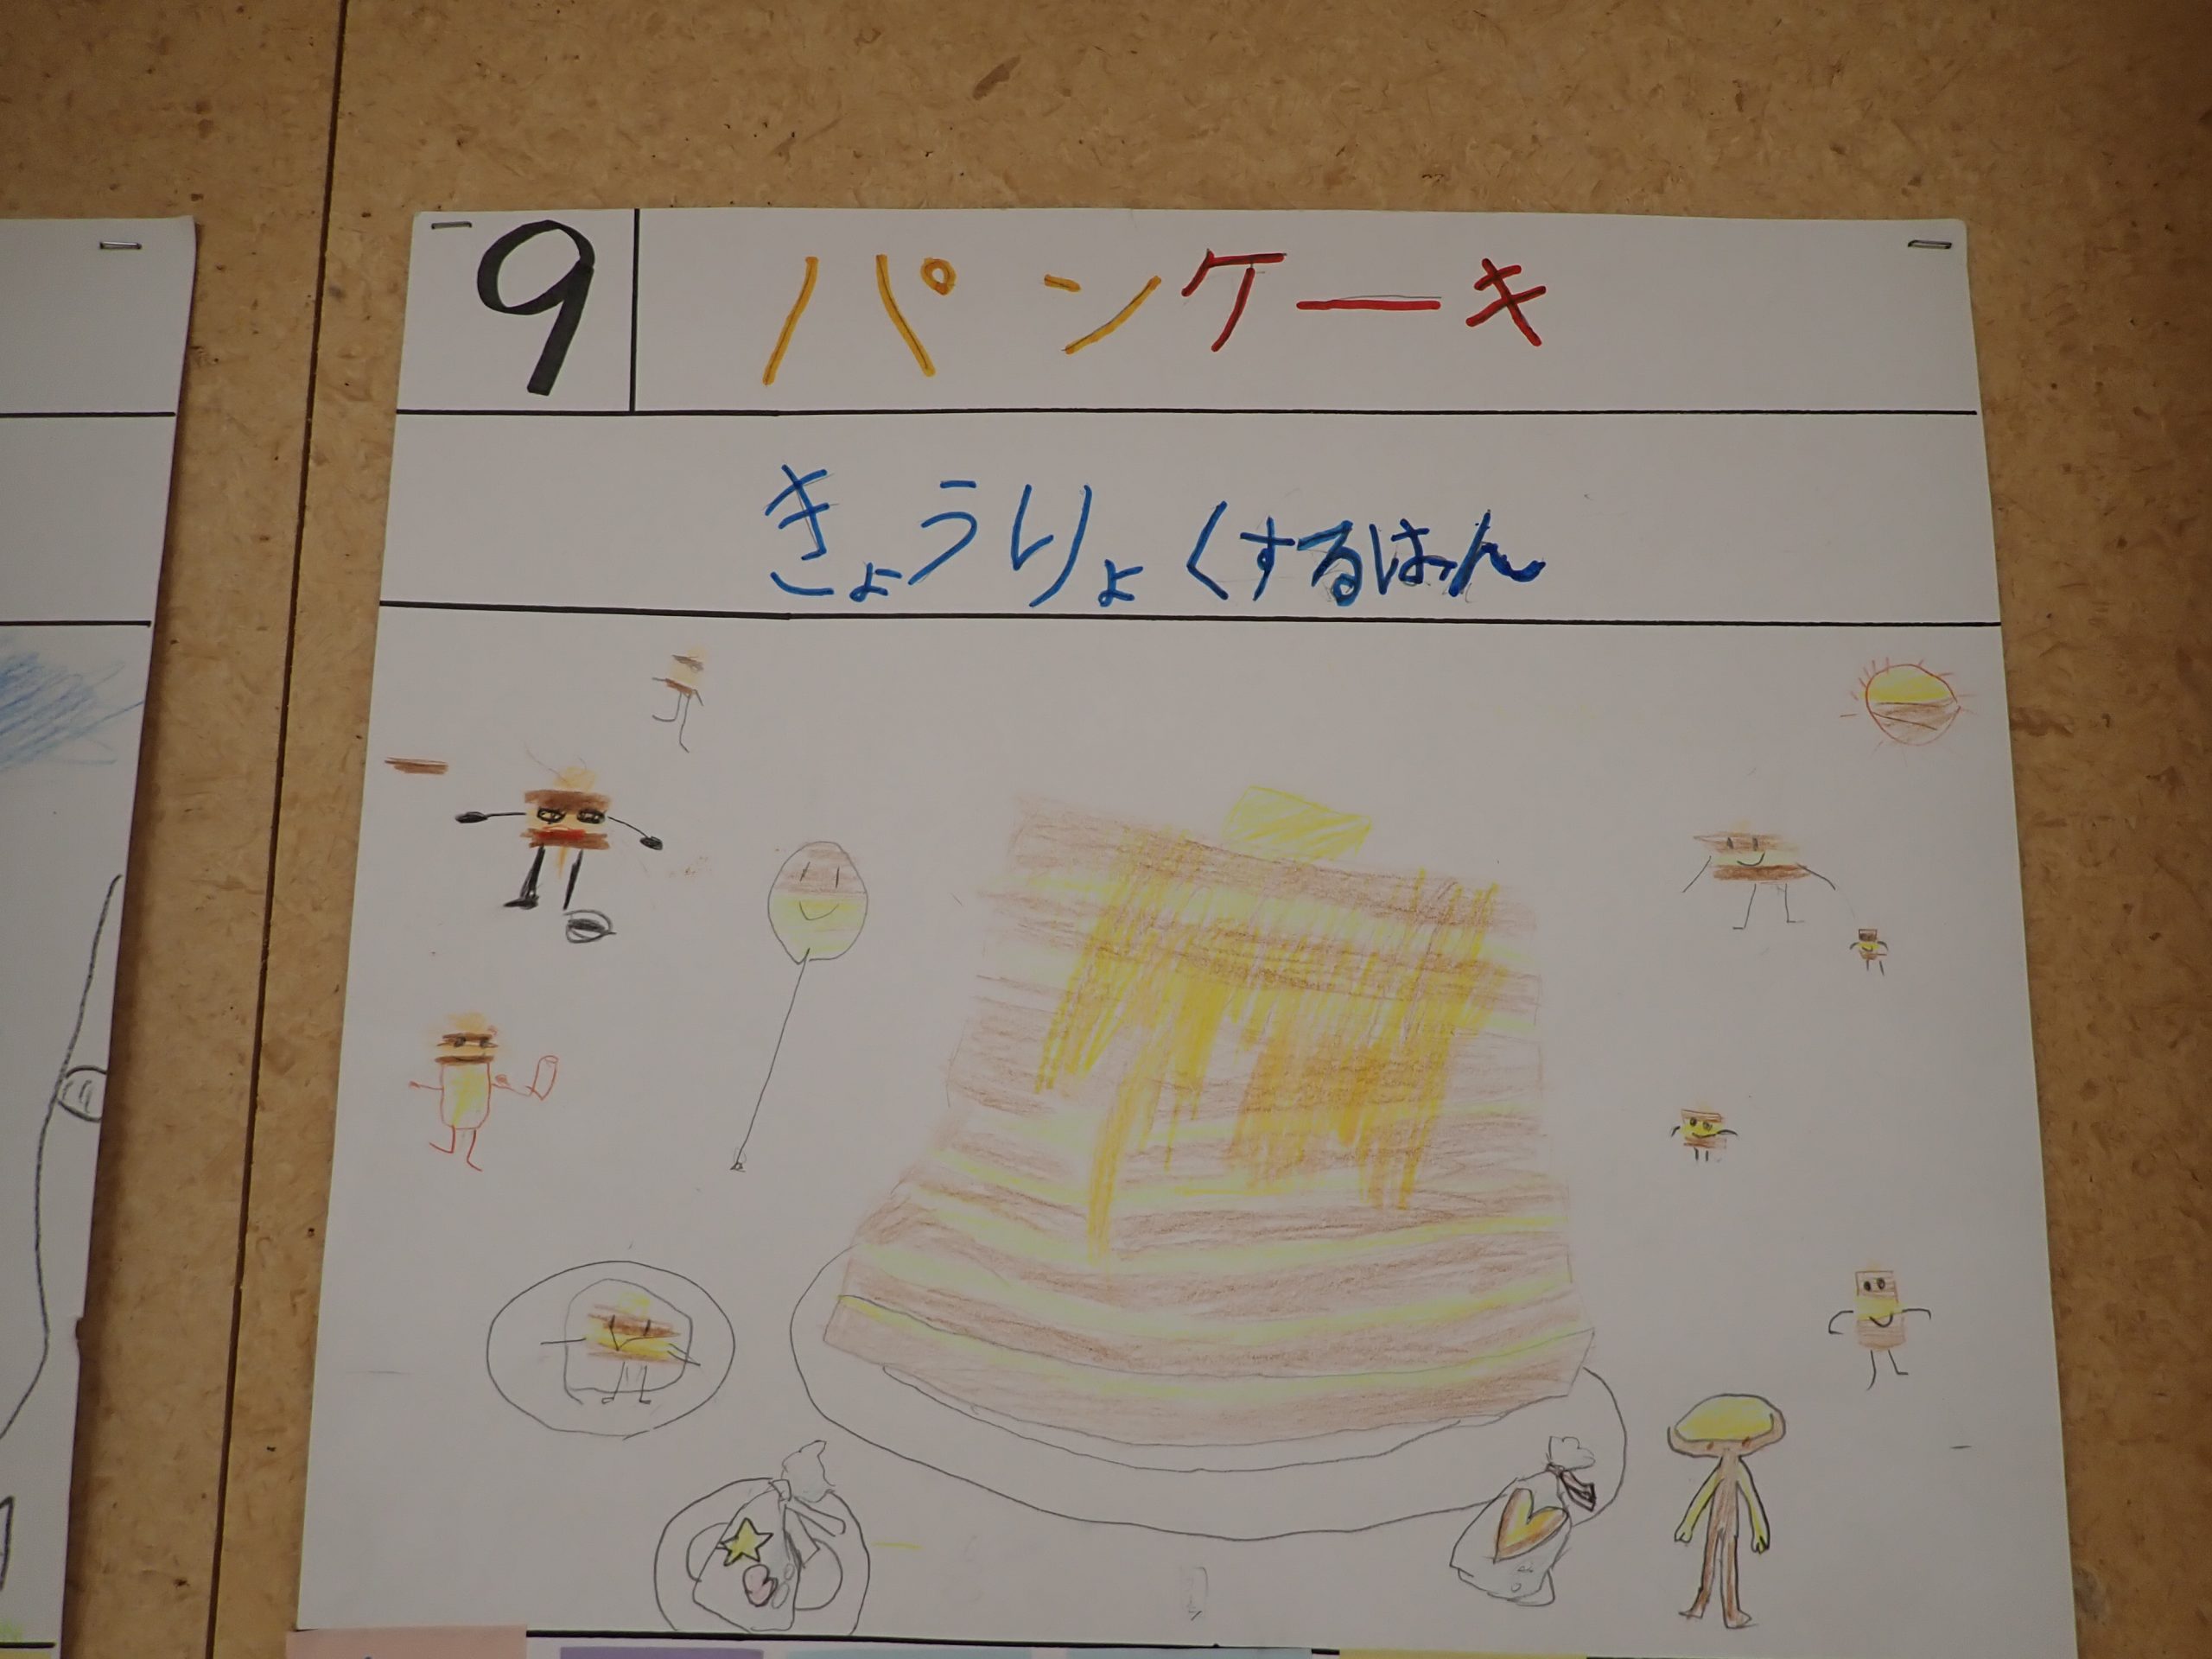 9 パンケーキ
きょうりょくするはん